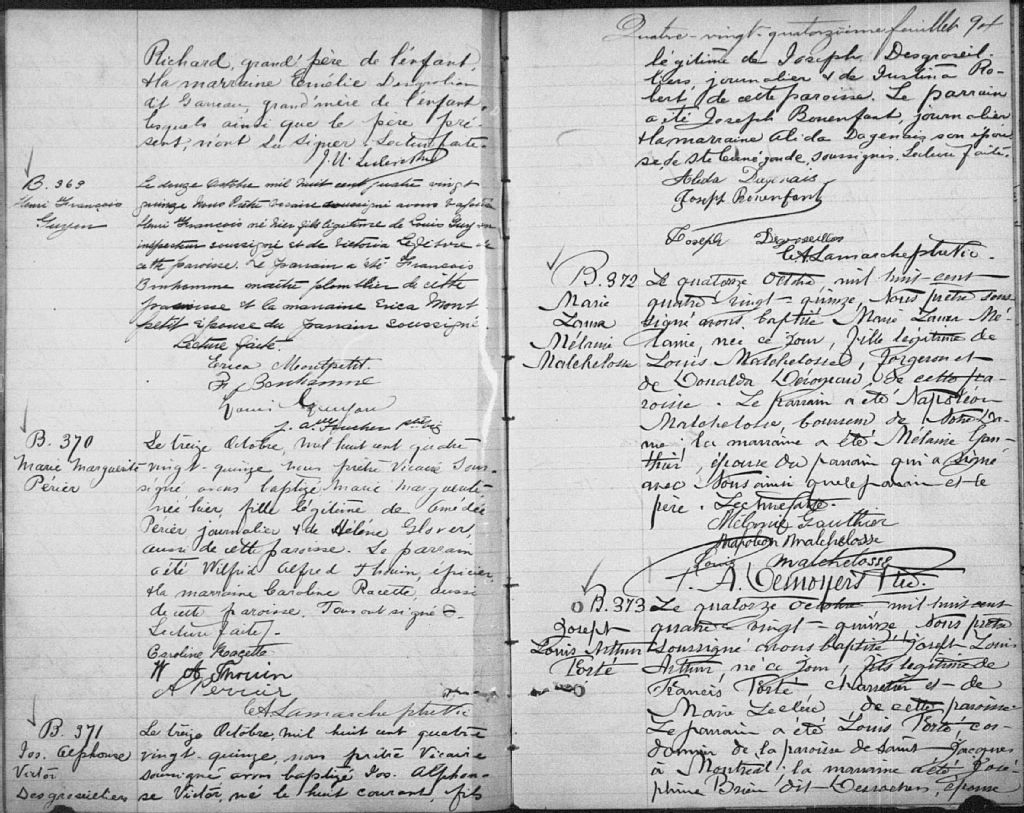 Richard, grand'père de l'enfant,
& la marraine Emélie
dt Gareau, grand'mère de l'enfant,
lesquels ainsi que le père pré-
sent, n'ont su signer. Lecture faite.
B. 369
Henri François
Guyon
Le douze Octobre mil huit cent quatre vingt
quinze Nous Prêtre vicaire soussigné avons baptisé
Henri François né hier fils légitime de Louis Guyon
inspecteur soussigné et de Victoria Lefebvre de
cette paroisse. Le parrain a été François
Bonhomme maître plombier de cette
paroisse et la marraine Erica Mont
petit épouse du parrain soussigné.
Lecture faite.
Erica Montpetit.
F Bonhomme
Louis Guyon
B. 370
Marie Marguerite
Périer
Le treize Octobre, mil huit cent quatre
vingt-quinze nous prêtre Vicaire Sous-
signé avons baptizé Marie Marguerite
née hier, fille légitime de Amédée
Périer journalier & de Hélène Glover,
aussi de cette paroisse. Le parrain
a été Wilfrid Alfred Thouin, épicier,
& la marraine Caroline Racette, aussi
de cette paroisse. Tous ont signé
Lecture faite.
Caroline Racette
W A Thouin
A Perrier
C A Lamarche ptre Vic
B. 371
Jos. Alphonse
Victor
Desgroseilliers
Le treize Octobre, mil huit cent quatre
vingt-quinze, nous prêtre Vicaire
soussigné avons baptizé Jos. Alphon-
se Victor, né le huit courant, fils
Quatre-vingt-quatorzième feuillet 94
légitime de Joseph Desgroseil-
liers, journalier & de Justina Ro-
bert, de cette paroisse. Le parrain
a été Joseph Bonenfant, journalier
& la marraine Alida Dagenais son épou-
se de Ste Cunégonde, soussignés. Lecture faite.
Alida Dagenais
Joseph Bonenfant
Joseph Desgroseillos
C A Lamarche ptre Vic.
B. 372
Marie
Laura
Mélanie
Malchelosse
Le quatorze Octobre, mil huit-cent
quatre vingt-quinze, Nous prêtre sous
signé avons baptisé Marie Laura Mé-
lanie, née ce jour, fille légitime de
Louis Malchelosse, forgeron et
de Donalda Dérogeau, de cette pa-
roisse. Le parrain a été Napoléon
Malchelosse, de Notre-Da-
me; la marraine a été Mélanie Gau-
thier, épouse du parrain qui a signé
avec Nous ainsi que le parrain et le
père. Lecture faite.
Mélanie Gauthier
Napoléon Malchelosse
Louis Malchelosse
B. 373
Joseph
Louis Arthur
Porté
Le quatorze Octobre, mil huit cent
quatre vingt-quinze Nous prêtre
Soussigné avons baptisé Joseph Louis
Arthur, né ce jour, fils légitime de
Francis Porté charretier et de
Marie Leclerc de cette paroisse.
Le parrain a été Louis Porté cor-
donnier de la paroisse de Saint Jacques
à Montréal; la marraine a été José-
phine Brien dit Desrochers, épouse